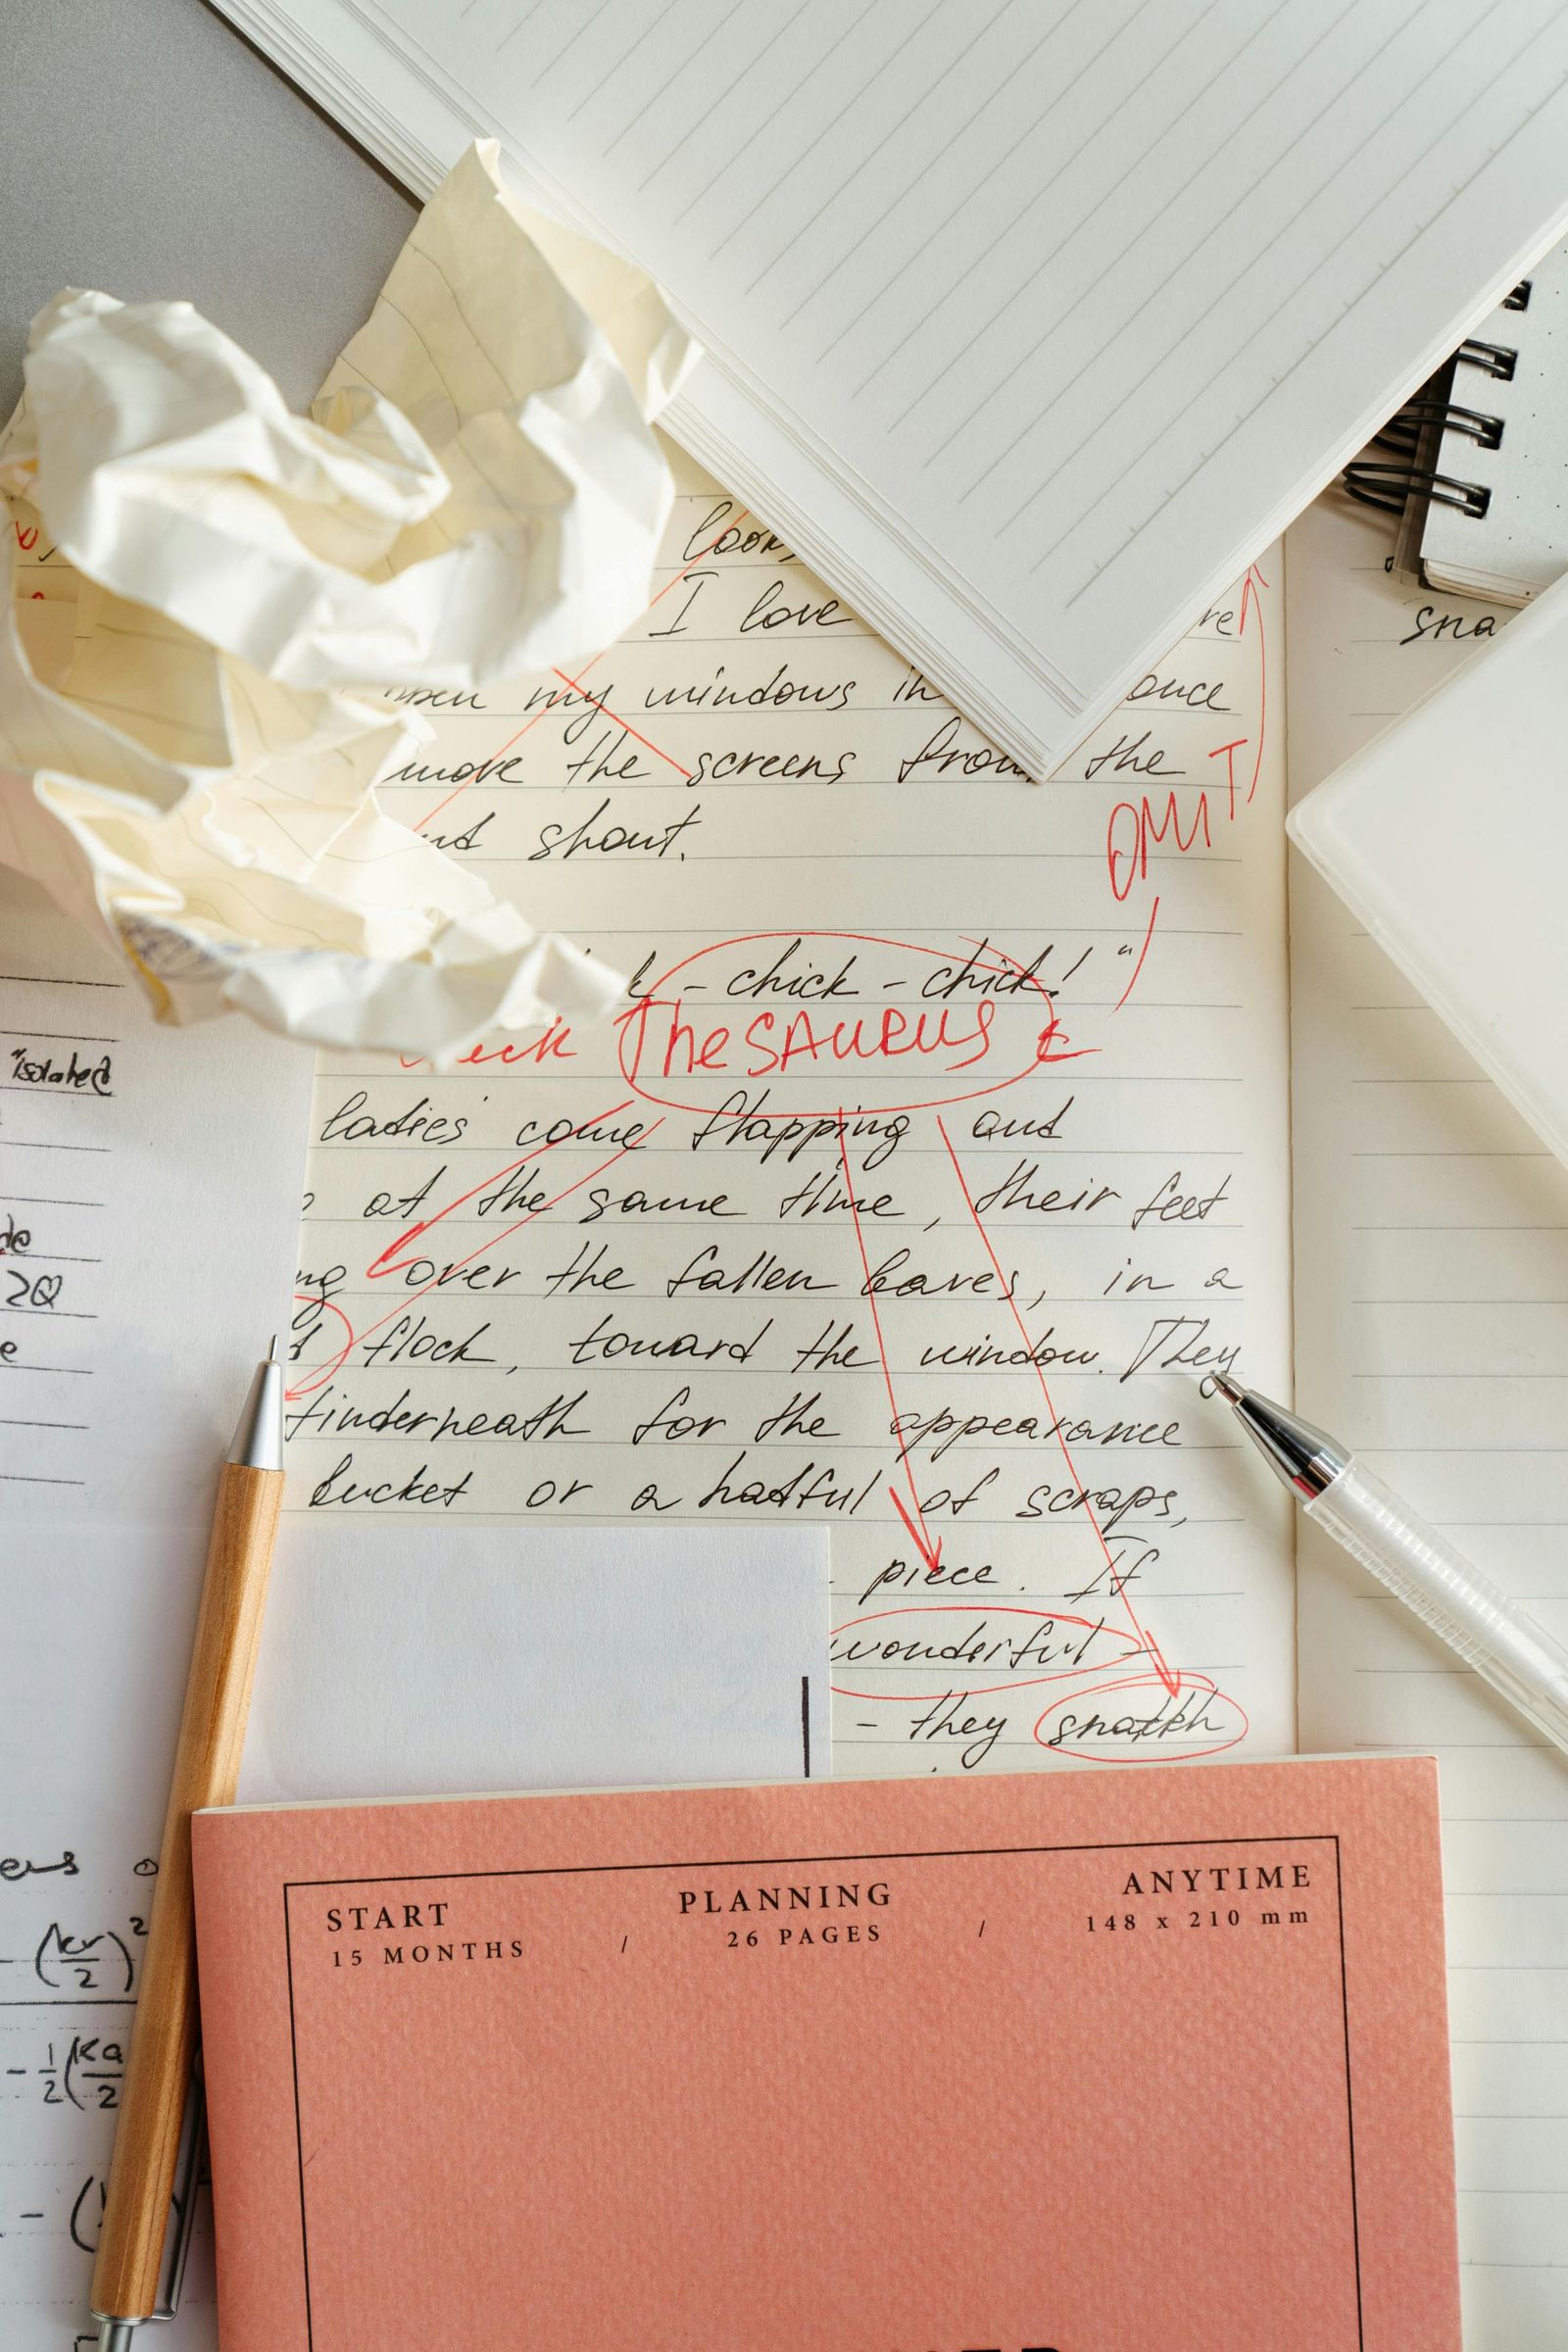 looks
I love
my windows in once
move the screens from the
shout.
OMIT
- chick - chick! "
Check THESAURUS
ladies come flapping and
at the same time, their feet
over the fallen leaves, in a
flock, toward the window. They
underneath for the appearance
bucket or a hatful of scraps,
piece. If
wonderful -
- they snatch
sna
"isolated
2Q
(kr/2)²
- 1/2 (ka/2
START
15 MONTHS
/
PLANNING
26 PAGES
/
ANYTIME
148 x 210 mm